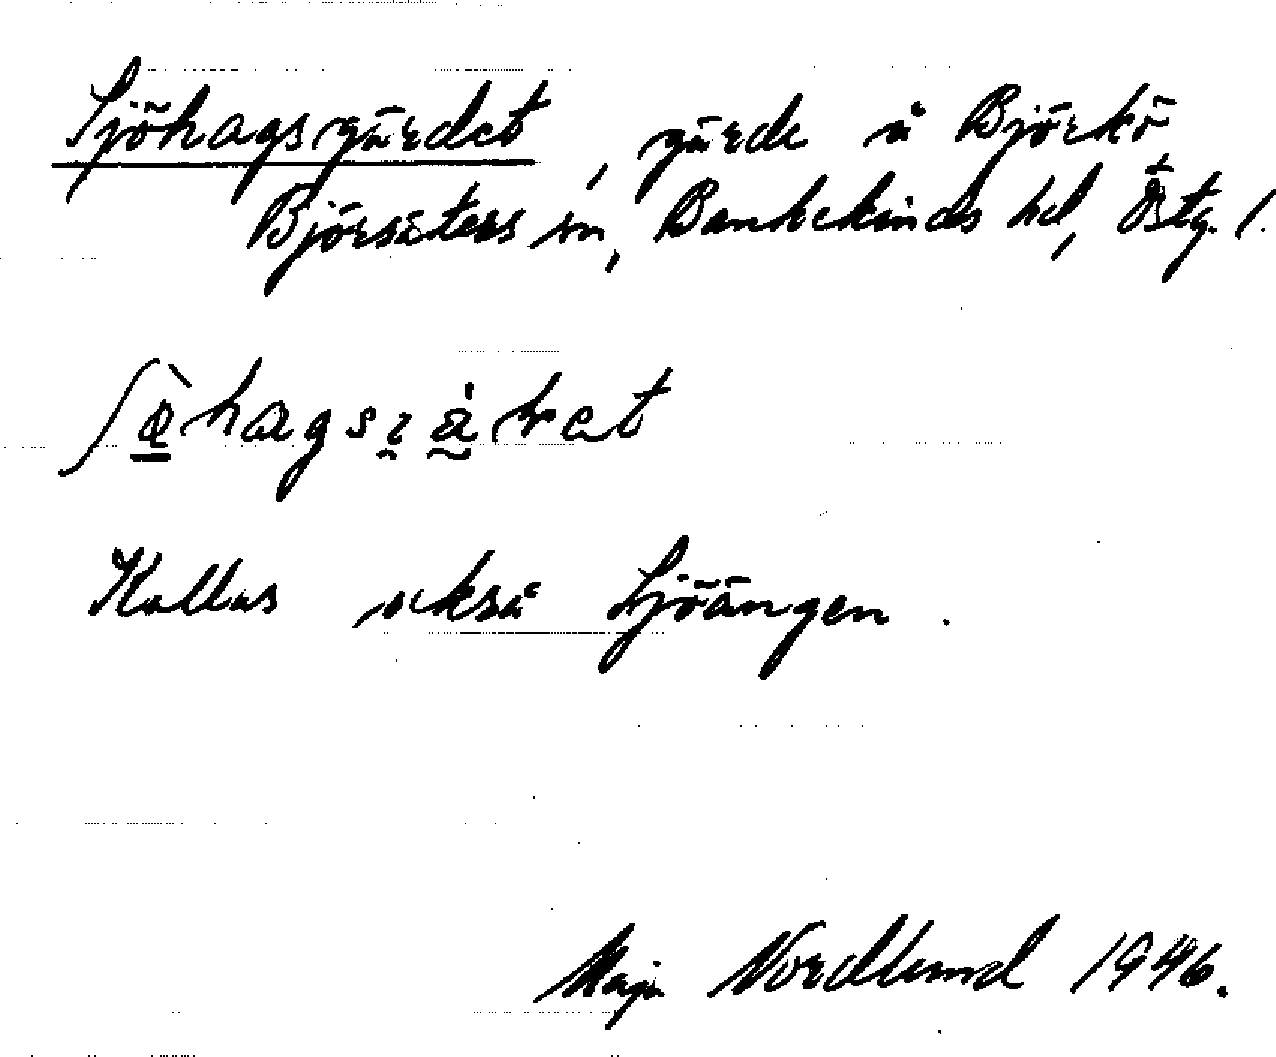 Sjöhagsgärdet, gärde å Björkö,
Björsäters sn, Bankekinds hd, Östg. l.
Kallas också Sjöängen.
Maja Nordlund 1946.